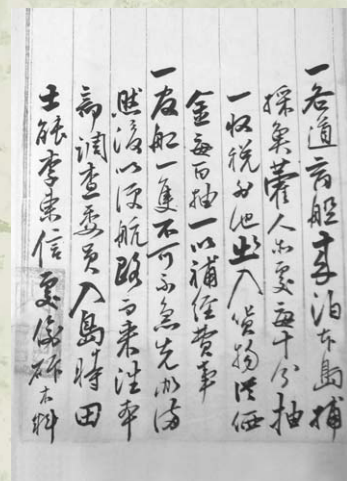 一各道商船来泊本島捕
採魚藿人等處每十分抽
一收稅外他出入貨物從価
金每百抽一以補經費事
一官舡一隻不可不急先辦備
然後以便航路而来往本
部調查委員入島時田
士能李忠信處偸斫木料